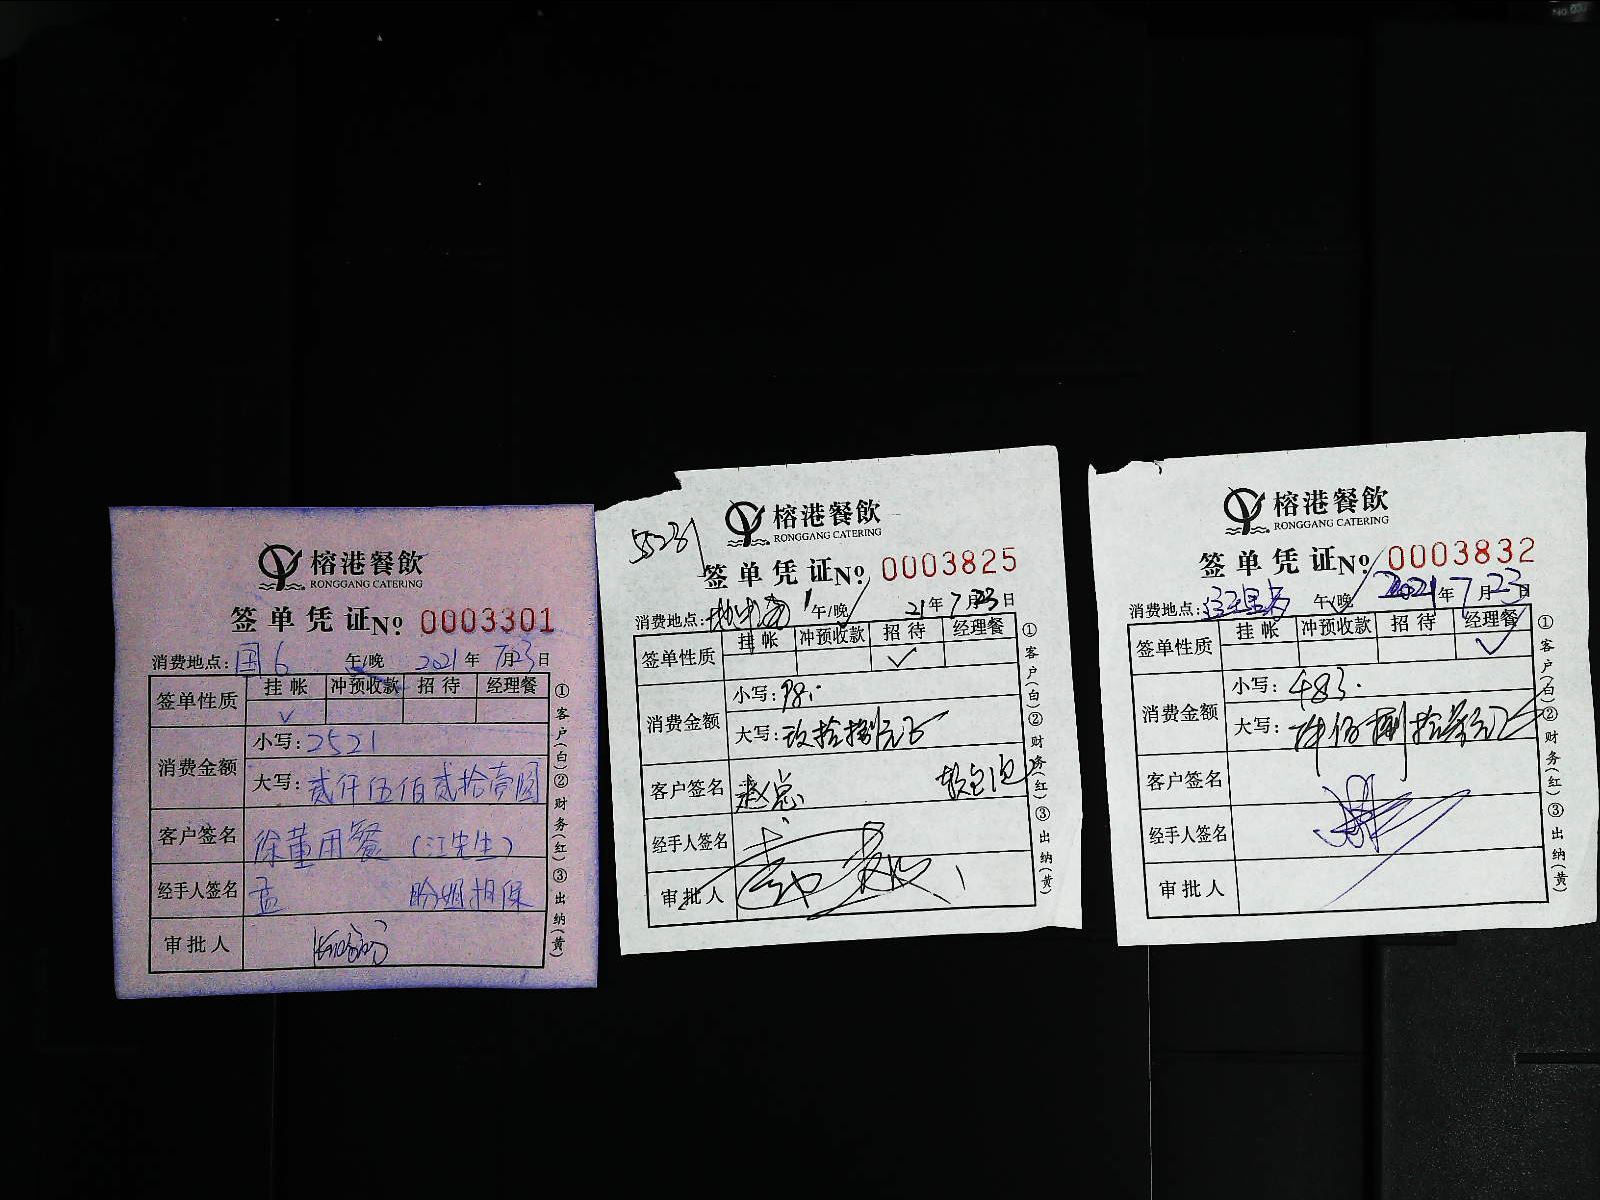 榕港餐飲
RONGGANG CATERING
签单凭证No 0003301
消费地点: 国6 午/晚 2021年7月23日
签单性质 挂帐 冲预收款 招待 经理餐
✓
消费金额
小写: 2521
大写: 贰仟伍佰贰拾壹圆
客户签名 徐董用餐 (江先生)
经手人签名 孟 盼姐担保
审批人
①客户(白)②财务(红)③出纳(黄)
55231
榕港餐飲
RONGGANG CATERING
签单凭证No 0003825
消费地点: 午/晚 21年7月23日
签单性质 挂帐 冲预收款 招待 经理餐
✓
消费金额
小写: 98.
大写: 玖拾捌元正
客户签名 赵总
经手人签名
审批人
①客户(白)②财务(红)③出纳(黄)
榕港餐飲
RONGGANG CATERING
签单凭证No 0003832
消费地点: 午/晚 2021年7月23日
签单性质 挂帐 冲预收款 招待 经理餐
✓
消费金额
小写: 483.
大写: 肆佰捌拾叁元正
客户签名
经手人签名
审批人
①客户(白)②财务(红)③出纳(黄)